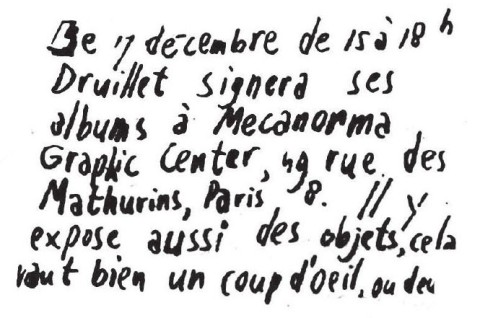 Le 17 décembre de 15 à 18 h
Druillet signera ses
albums à Mecanorma
Graphic Center, 49 rue des
Mathurins, Paris 8. Il y
expose aussi des objets, cela
vaut bien un coup d'oeil, ou deu